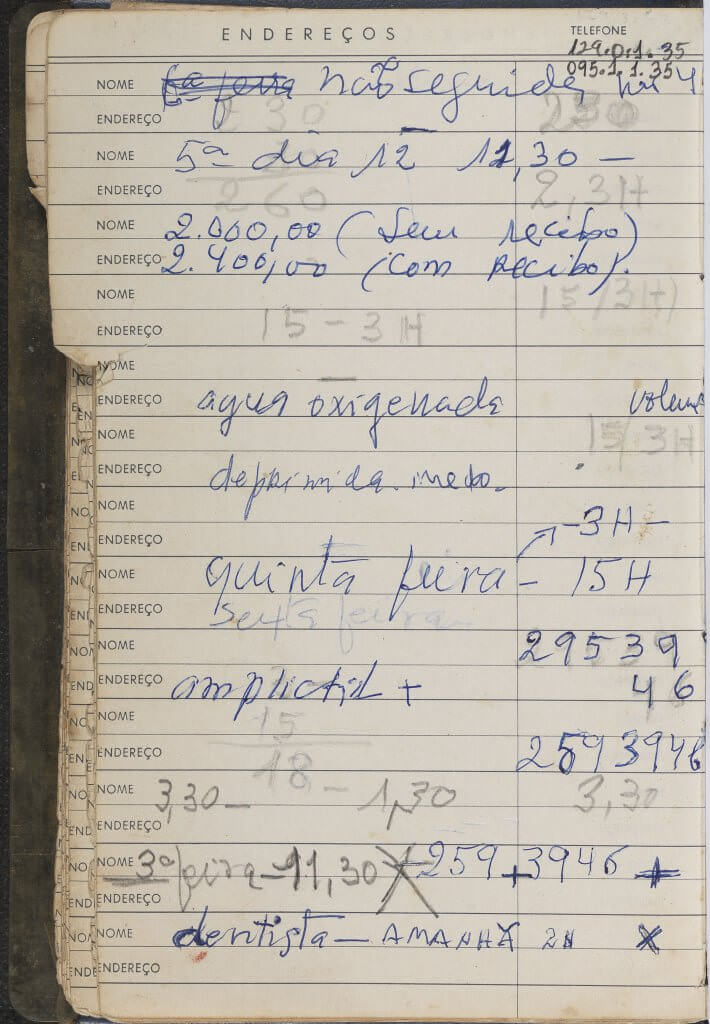 ENDEREÇOS
TELEFONE
129.0.1.35
095.1.1.35
NOME 6ª feira não seguida
ENDEREÇO 230 230
NOME 5ª dia 12 11,30 —
ENDEREÇO 260 2,3H
NOME 2.000,00 (Sem recibo)
ENDEREÇO 2.400,00 (Com Recibo).
NOME 15/3H)
ENDEREÇO 15 - 3H
NOME
ENDEREÇO agua oxigenada volum
NOME 15/3H
ENDEREÇO deprimida.
NOME - 3H -
ENDEREÇO
NOME quinta feira - 15H
ENDEREÇO sexta feira
NOME 29539
ENDEREÇO amplictil + 46
NOME 15
ENDEREÇO 18 2593946
NOME 3,30 - - 1,30 3,30
ENDEREÇO
NOME 3ª feira - 11,30 X 259 + 3946 +
ENDEREÇO
NOME dentista - AMANHÃ 2H X
ENDEREÇO